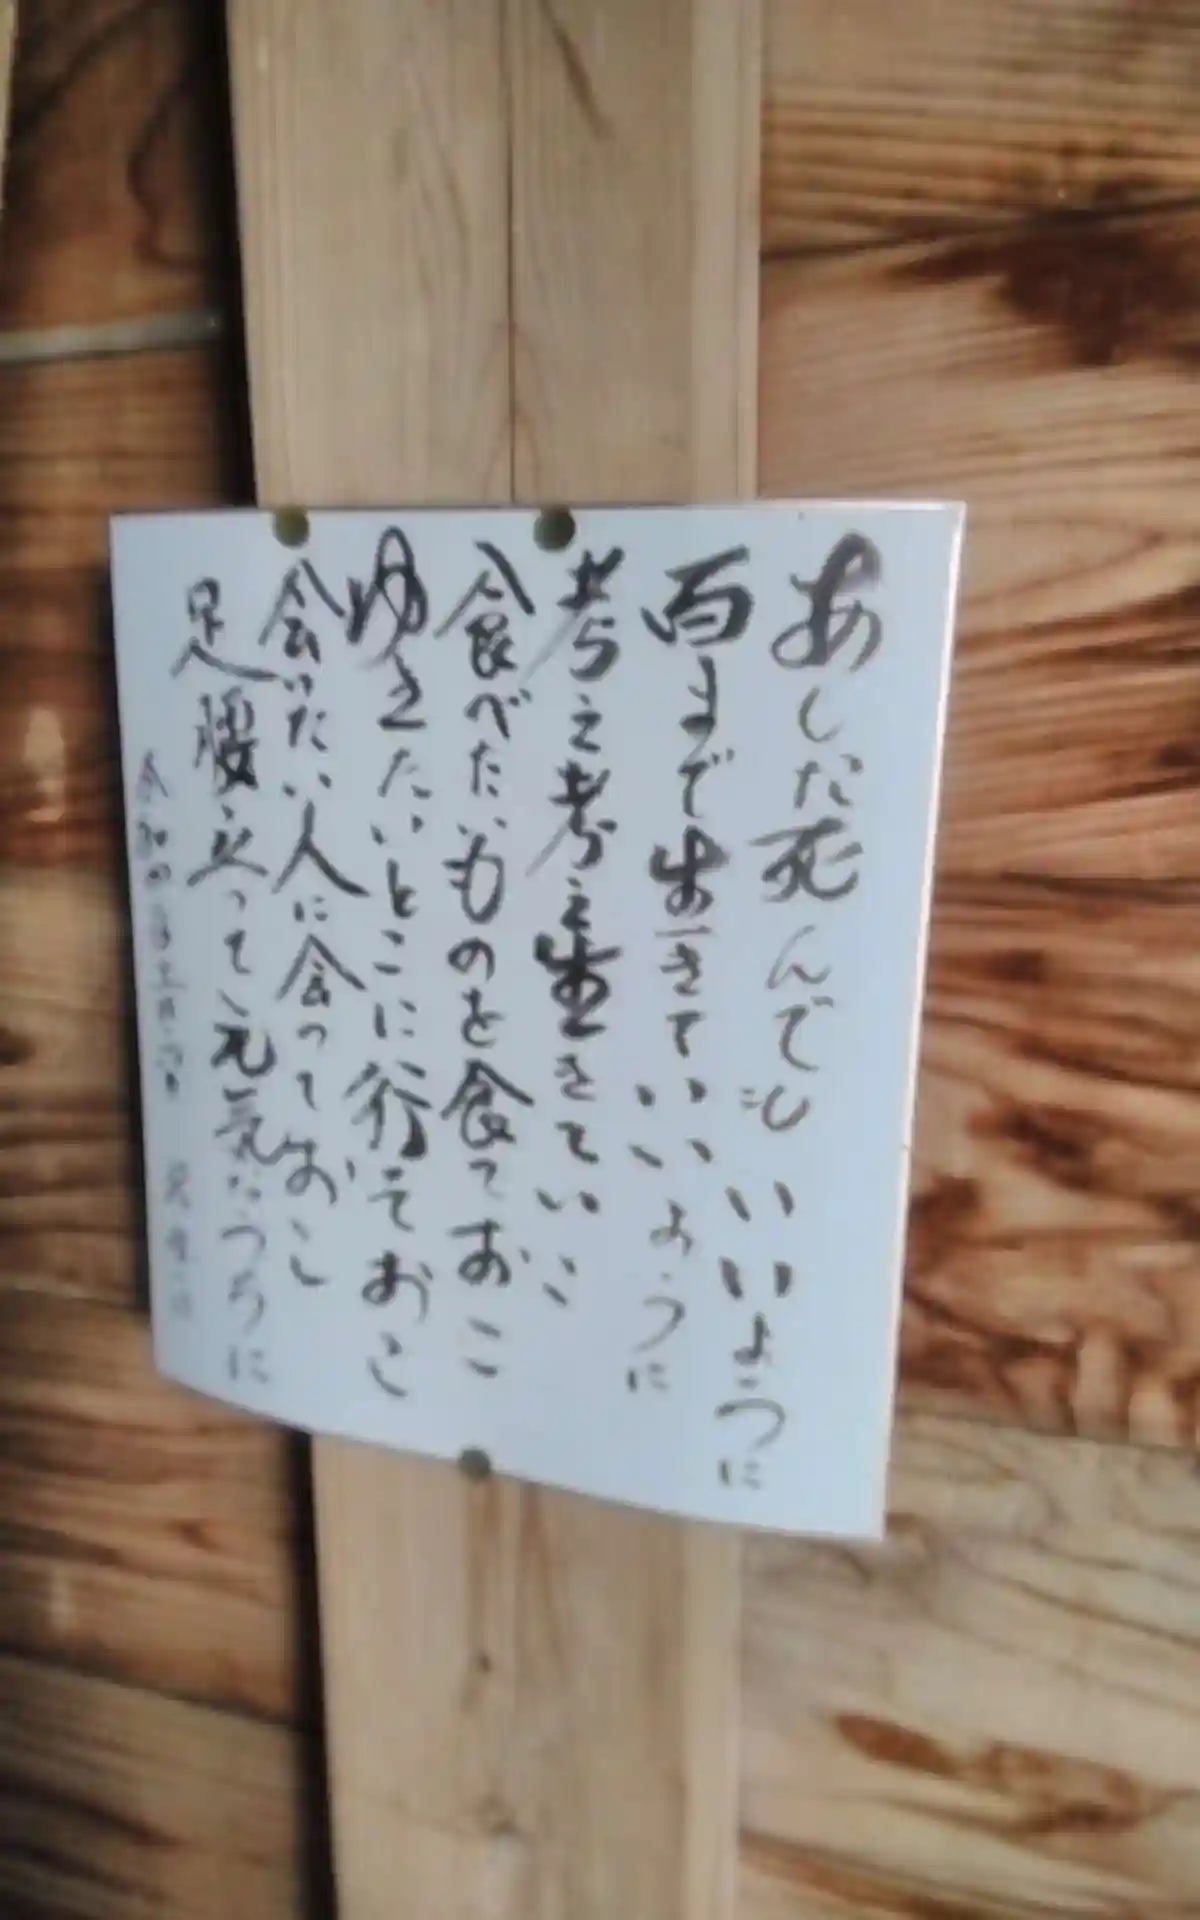 あした死んでもいいように
百まで生きていいように
考え考え生きていこ
食べたいものを食っておこ
ゆきたいとこに行ておこ
会いたい人に会っておこ
足腰立って元気なうちに
令和四年五月